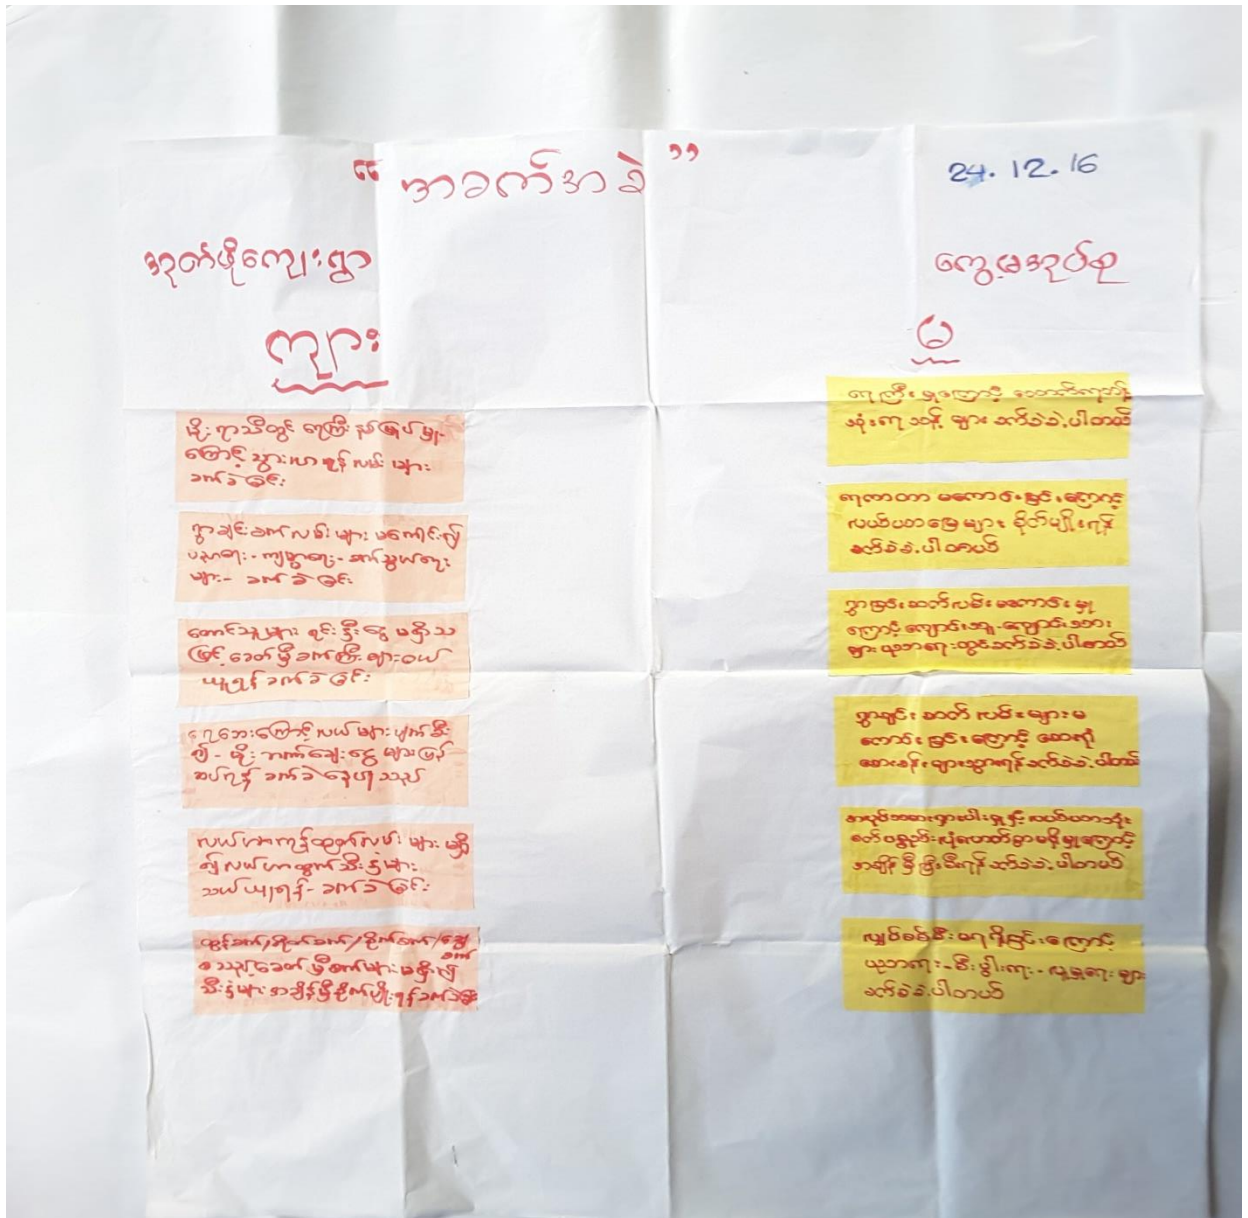 "အခက်အခဲ"
24.12.16
အုတ်ဖိုကျေးရွာ
ကွေ့မအုပ်စု
ကျား
မိုးရာသီတွင် ရေကြီးနစ်မြုပ်မှု
ကြောင့် သွားလာရန်လမ်းများ
ခက်ခဲခြင်း
ရွာချင်းဆက်လမ်းများ မကောင်း၍
ပညာရေး - ကျန်းမာရေး - ဆက်သွယ်ရေး
များ - ခက်ခဲခြင်း
တောင်သူများ ရင်းနှီးငွေ မရှိသ
ဖြင့် ခေတ်မှီစက်ကြီးများဝယ်
ယူရန် ခက်ခဲခြင်း
ရေဘေးကြောင့် လယ်များပျက်စီး
၍ - စိုး ဘဏ်ချေးငွေ များပြန်
ဆပ်ရန် ခက်ခဲနေပါသည်
လယ်ယာကုန်ထုတ်လမ်းများ မရှိ
၍ လယ်ယာထွက်သီးနှံများ
သယ်ယူရန် - ခက်ခဲခြင်း
ထွန်စက်/ရိတ်စက်/စိုက်စက်/ခြွေ
စက်
စသည့်ခေတ်မှီစက်များ မရှိ၍
သီးနှံများ အချိန်မှီစိုက်ပျိုးရန်ခက်ခဲခြင်း
မ
ရေကြီးမှုကြောင့် သောက်ရေ
သုံးရေသန့် များ ခက်ခဲခဲ့ပါတယ်
ရေကာတာ မကောင်းခြင်းကြောင့်
လယ်ယာမြေများ စိုက်ပျိုးရန်
ခက်ခဲခဲ့ပါတယ်
ရွာချင်းဆက်လမ်းမကောင်းမှု
ကြောင့် ကျောင်းသူ-ကျောင်းသား
များ ပညာရေးတွင်ခက်ခဲခဲ့ပါတယ်
ရွာချင်းဆက်လမ်းများမ
ကောင်းခြင်းကြောင့် ဆေးရုံ
ဆေးခန်းများသွားရန်ခက်ခဲခဲ့ပါတယ်
အလုပ်သမားရှားပါးမှုနှင့် လယ်ယာသုံး
စက်ပစ္စည်းလုံလောက်စွာမရှိမှုကြောင့်
အချိန်မှီပြီးစီးရန်ခက်ခဲခဲ့ပါတယ်
လျှပ်စစ်မီးမရရှိခြင်းကြောင့်
ပညာရေး-စီးပွါးရေး-လူမှုရေးများ
ခက်ခဲခဲ့ပါတယ်